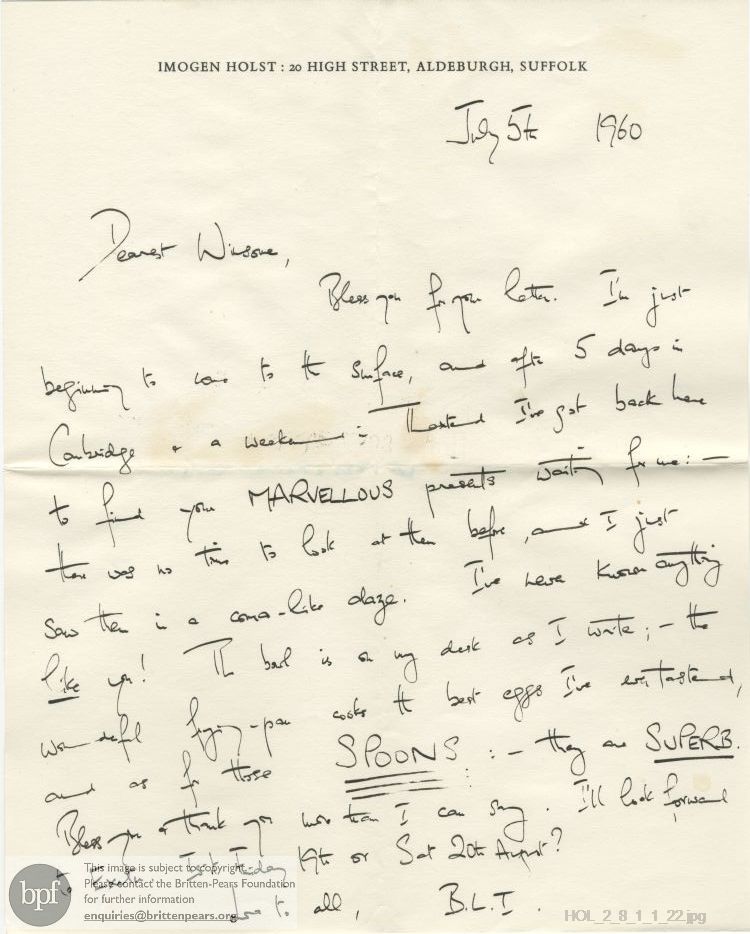 IMOGEN HOLST : 20 HIGH STREET, ALDEBURGH, SUFFOLK
July 5th 1960
Dearest Winsome,
Bless you for your letter. I'm just
beginning to come to the surface, and after 5 days in
Cambridge + a weekend in Thaxted I've got back here
to find your MARVELLOUS presents waiting for me: —
there was no time to look at them before, and I just
saw them in a coma-like daze. I've never known anything
like you! The bowl is on my desk as I write; — the
wonderful frying-pan cooks the best eggs I've ever tasted,
and as for those SPOONS : — they are SUPERB.
Bless you & thank you more than I can say. I'll look forward
to Friday 19th or Sat 20th August?
love to all, B.L.I.
bpf
This image is subject to copyright.
Please contact the Britten-Pears Foundation
for further information
enquiries@brittenpears.org
HOL_2_8_1_1_22.jpg